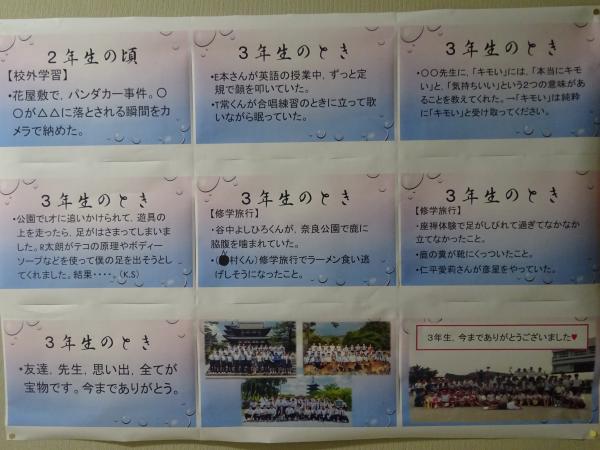 2年生の頃
【校外学習】
・花屋敷で，パンダカー事件。〇
〇が△△に落とされる瞬間をカ
メラで納めた。
3年生のとき
・E本さんが英語の授業中，ずっと定
規で顔を叩いていた。
・T常くんが合唱練習のときに立って歌
いながら眠っていた。
3年生のとき
・〇〇先生に，「キモい」には，「本当にキモ
い」と，「気持ちいい」という2つの意味があ
ることを教えてくれた。→「キモい」は純粋
に「キモい」と受け取ってください。
3年生のとき
・公園でLオに追いかけられて，遊具の
上を走ったら，足がはさまってしまいま
した。R太朗がテコの原理やボディー
ソープなどを使って僕の足を出そうとし
てくれました。結果・・・・。（K.S）
3年生のとき
【修学旅行】
・谷中よしひろくんが，奈良公園で鹿に
脇腹を噛まれていた。
・（村くん）修学旅行でラーメン食い逃
げしそうになったこと。
3年生のとき
【修学旅行】
・座禅体験で足がしびれて過ぎてなかなか
立てなかったこと。
・鹿の糞が靴にくっついたこと。
・仁平愛莉さんが彦星をやっていた。
3年生のとき
・友達，先生，思い出，全てが
宝物です。今までありがとう。
3年生，今までありがとうございました♥